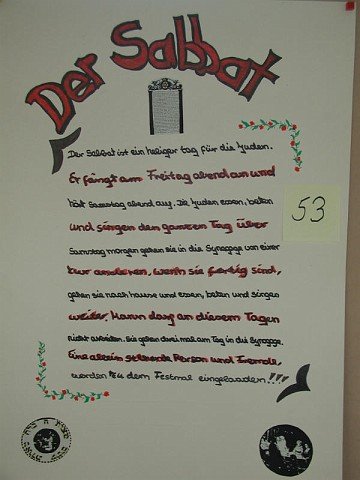 Der Sabbat
Der Sabbat ist ein heiliger tag für die Juden.
Er faingt am Freitag abend an und
hört Samstag abend auf. Die Juden essen, beten
und singen den ganzen Tag über
Samstag morgen gehen sie in die Synagoge von einer
zur anderen, wenn sie fertig sind,
gehen sie nach hause und essen, beten und singen
weiter. Mann darf an diesem Tagen
nicht arbeiten. Sie gehen drei mal am Tag in die Synagoge.
Eine allein stehende Person und Fremde,
werden zu dem Festmal eingelanden!!!
53